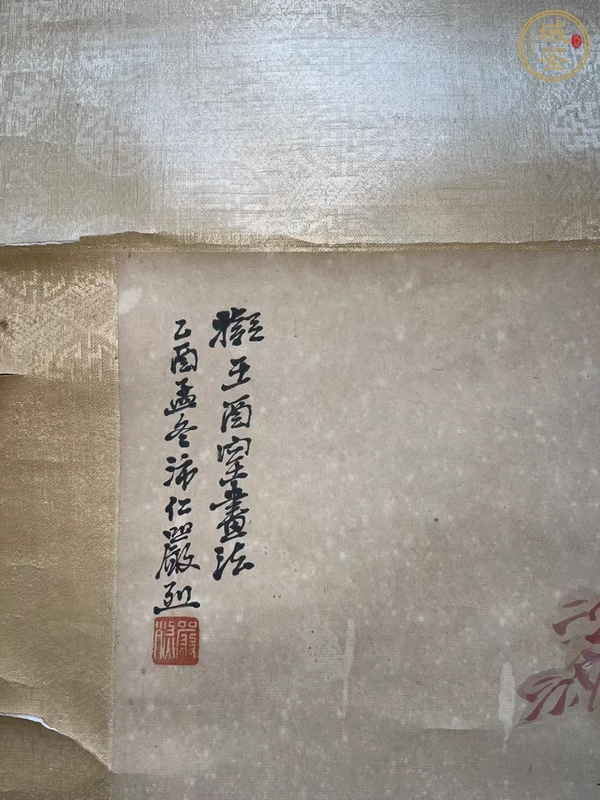 擬王酉室畫法
乙酉孟冬沛仁嚴烈